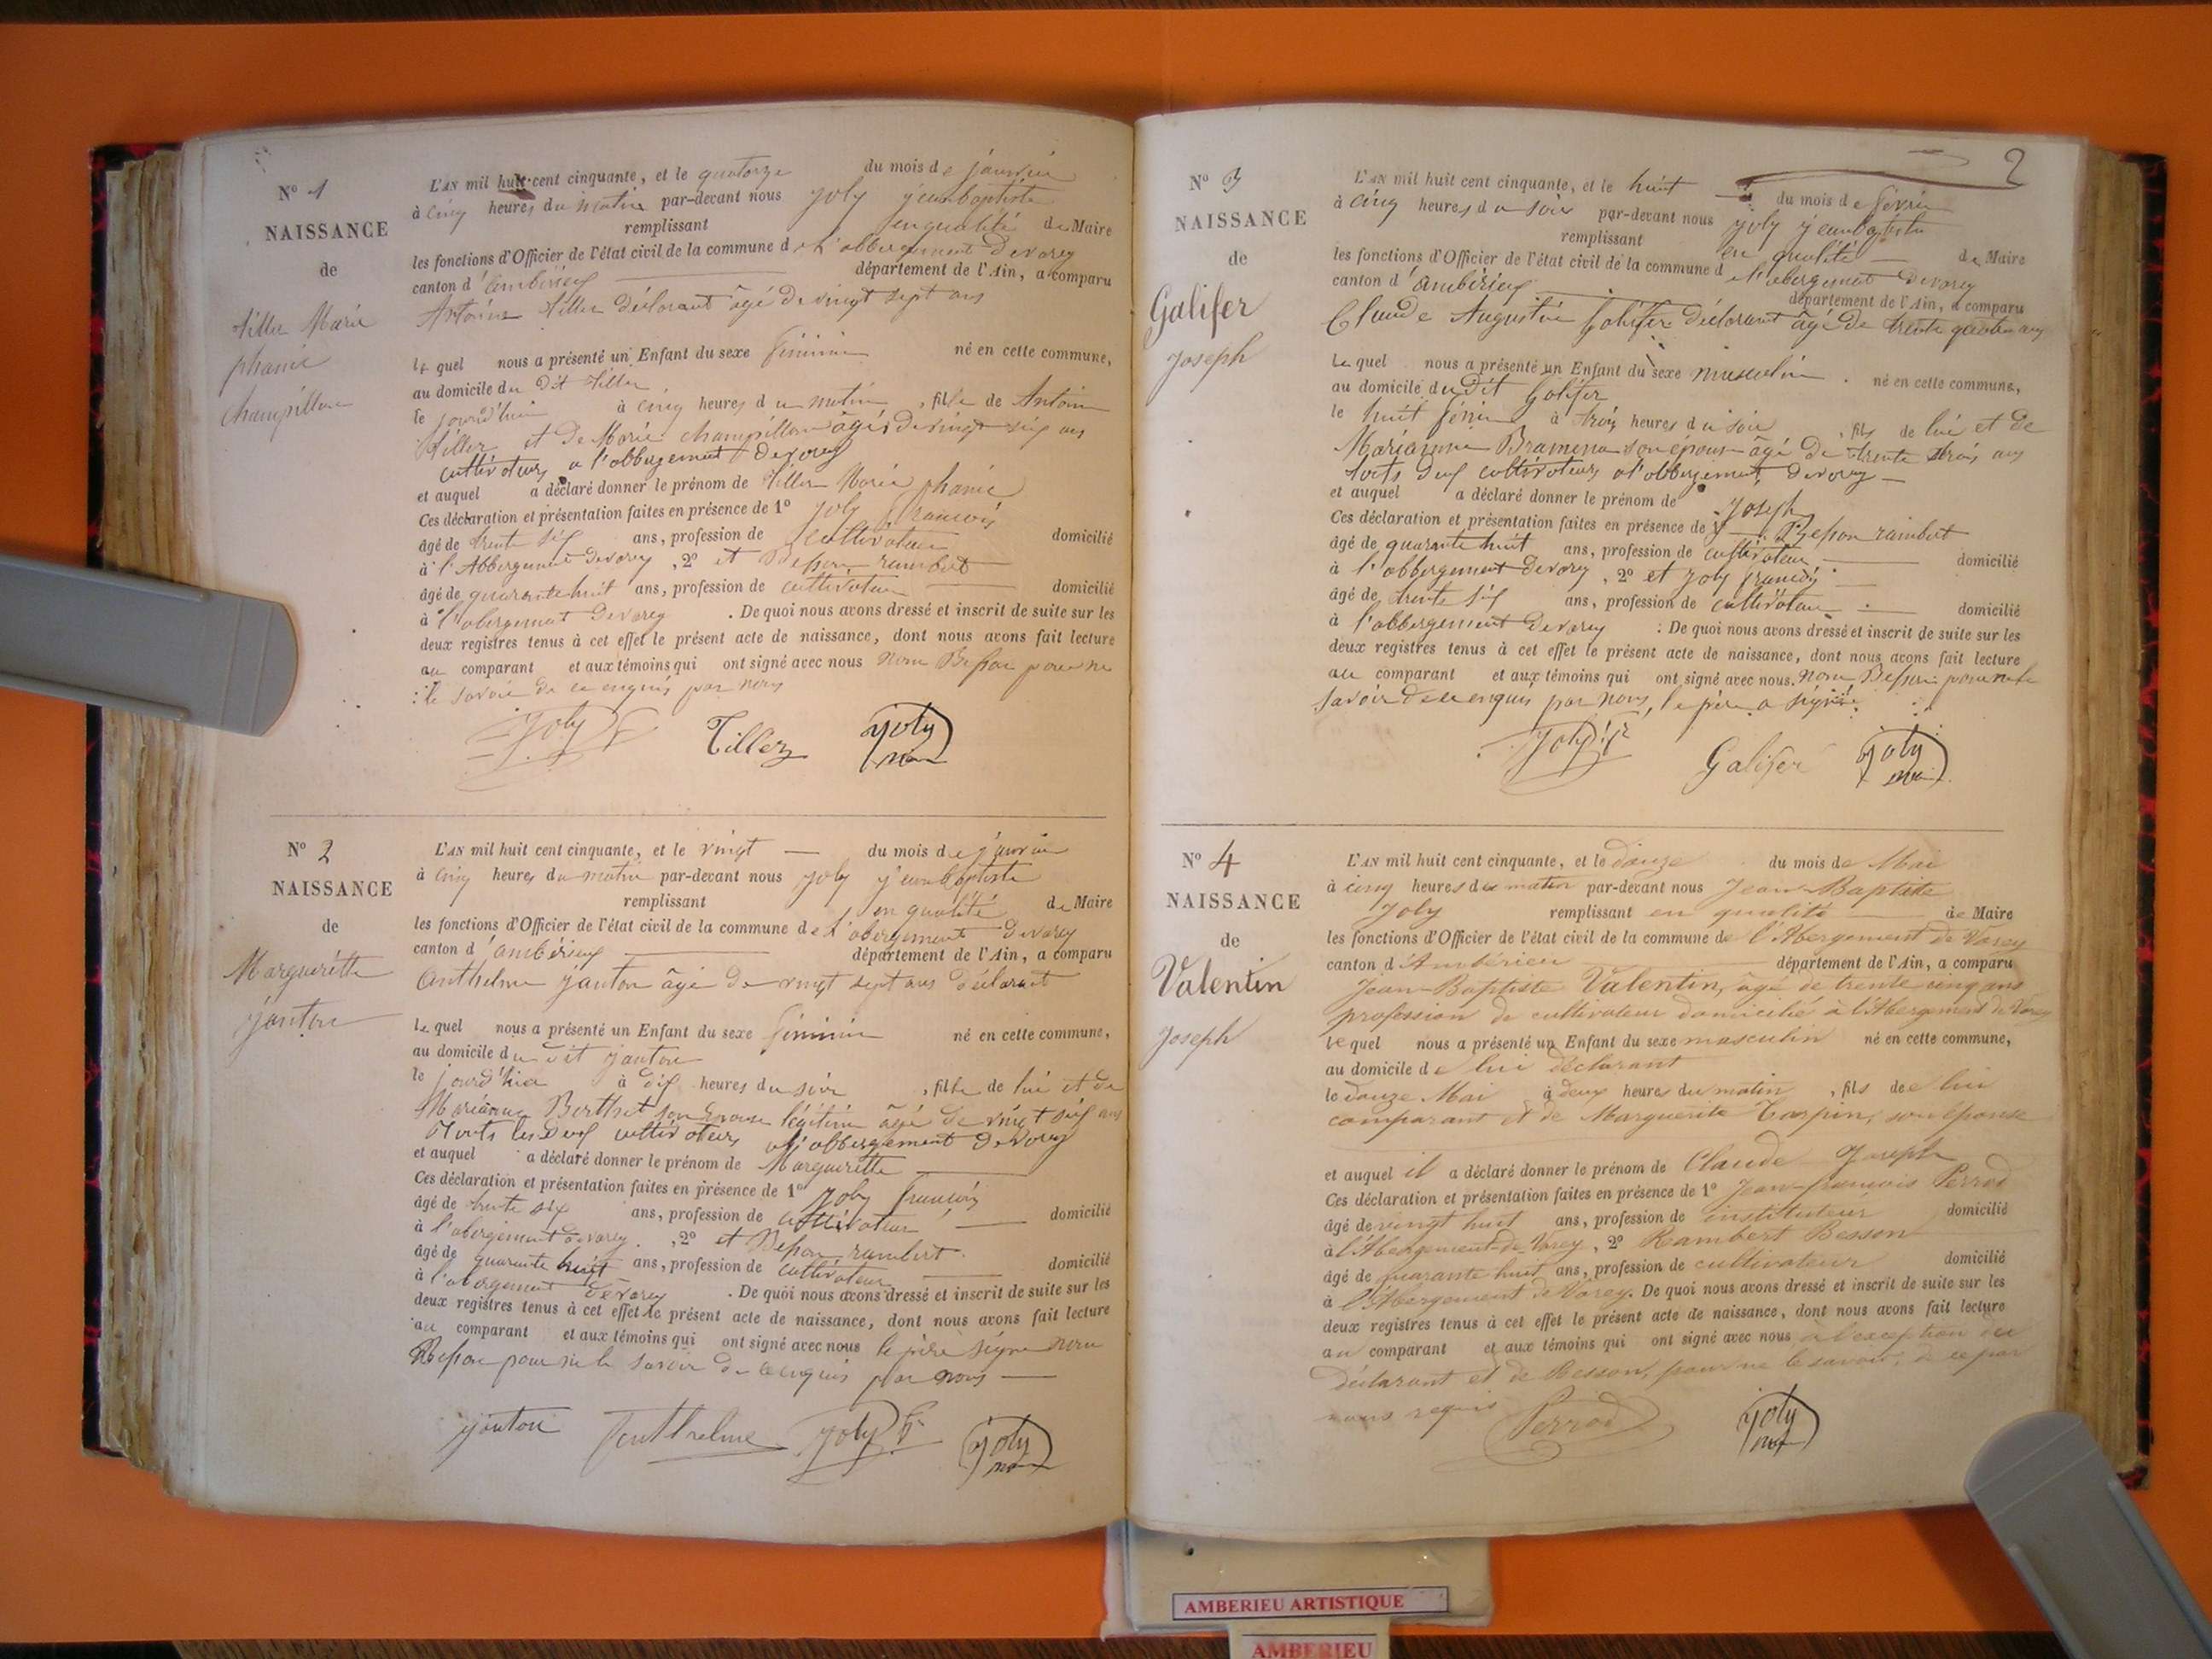 N° 1
NAISSANCE
de
tiller Marie
phanie
Champillon
L'AN mil huit cent cinquante, et le quatorze du mois de janvier
à cinq heures du matin par-devant nous joly jeanbaptiste
remplissant enqualité de Maire
les fonctions d'Officier de l'état civil de la commune de l'abbergement devarey
canton d'ambérieux département de l'Ain, a comparu
Antoine tiller déclarant âgé de vingt sept ans
le quel nous a présenté un Enfant du sexe féminin né en cette commune,
au domicile du dit tiller
le jourd'hui à cinq heures du matin, fille de Antoine
tiller et de Marie champillon âgés de vingt six ans
cultivateurs a l'abbergement devarey
et auquel a déclaré donner le prénom de tiller Marie phanie
Ces déclaration et présentation faites en présence de 1° joly francois
âgé de trente six ans, profession de cultivateur domicilié
à l'Abbergement devarey, 2° et Besson rambert
âgé de quarante huit ans, profession de cultivateur domicilié
à l'abergement devarey. De quoi nous avons dressé et inscrit de suite sur les
deux registres tenus à cet effet le présent acte de naissance, dont nous avons fait lecture
au comparant et aux témoins qui ont signé avec nous non Besson pour ne
le savoir de ce enquis par nous
joly f Tiller joly
N° 2
NAISSANCE
de
Margueritte
janton
L'AN mil huit cent cinquante, et le vingt du mois de janvier
à cinq heures du matin par-devant nous joly jeanbaptiste
remplissant en qualité de Maire
les fonctions d'Officier de l'état civil de la commune de l'abergement devarey
canton d'ambérieux département de l'Ain, a comparu
Anthelme janton âgé de vingt sept ans déclarant
le quel nous a présenté un Enfant du sexe féminin né en cette commune,
au domicile du dit janton
le jourd'hier à dix heures du soir, fille de lui et de
Marianne Berthet son épouse légitime âgé de vingt six ans
touts les deux cultivateurs a l'abbergement devarey
et auquel a déclaré donner le prénom de Margueritte
Ces déclaration et présentation faites en présence de 1° joly francois
âgé de trente six ans, profession de cultivateur domicilié
à l'abergement devarey, 2° et Besson rambert
âgé de quarante huit ans, profession de cultivateur domicilié
à l'abergement devarey. De quoi nous avons dressé et inscrit de suite sur les
deux registres tenus à cet effet le présent acte de naissance, dont nous avons fait lecture
au comparant et aux témoins qui ont signé avec nous le père signe non
Besson pour ne le savoir de ce enquis par nous
janton anthelme joly f joly
2
N° 3
NAISSANCE
de
Galifer
Joseph
L'AN mil huit cent cinquante, et le huit du mois de février
à cinq heures du soir par-devant nous joly jeanbaptiste
remplissant en qualité de Maire
les fonctions d'Officier de l'état civil de la commune de l'abergement devarey
canton d'ambérieux département de l'Ain, a comparu
Claude Augustin Galifer déclarant âgé de trente quatre ans
le quel nous a présenté un Enfant du sexe musculin né en cette commune,
au domicile du dit Galifer
le huit février à trois heures du soir, fils de lui et de
Marianne Bramena son épouse âgé de trente trois ans
touts deux cultivateurs a l'abbergement devarey
et auquel a déclaré donner le prénom de joseph
Ces déclaration et présentation faites en présence de 1° Besson rambert
âgé de quarante huit ans, profession de cultivateur domicilié
à l'abbergement devarey, 2° et joly francois
âgé de trente six ans, profession de cultivateur domicilié
à l'abbergement devarey. De quoi nous avons dressé et inscrit de suite sur les
deux registres tenus à cet effet le présent acte de naissance, dont nous avons fait lecture
au comparant et aux témoins qui ont signé avec nous. non Besson pour ne le
savoir de ce enquis par nous, le père a signé
joly f Galifer joly
N° 4
NAISSANCE
de
Valentin
Joseph
L'AN mil huit cent cinquante, et le douze du mois de Mai
à cinq heures du matin par-devant nous Jean-Baptiste
Joly remplissant en qualité de Maire
les fonctions d'Officier de l'état civil de la commune de l'Abergement de Varey
canton d'Ambérieu département de l'Ain, a comparu
Jean-Baptiste Valentin, âgé de trente cinq ans
profession de cultivateur domicilié à l'Abergement de Varey
lequel nous a présenté un Enfant du sexe masculin né en cette commune,
au domicile de lui déclarant
le douze Mai à deux heures du matin, fils de lui
comparant et de Marguerite Carpin, son épouse
et auquel il a déclaré donner le prénom de Claude Joseph
Ces déclaration et présentation faites en présence de 1° Jean-françois Perrod
âgé de vingt huit ans, profession de instituteur domicilié
à l'Abergement-de Varey, 2° Rambert Besson
âgé de quarante huit ans, profession de cultivateur domicilié
à l'Abergement de Varey. De quoi nous avons dressé et inscrit de suite sur les
deux registres tenus à cet effet le présent acte de naissance, dont nous avons fait lecture
au comparant et aux témoins qui ont signé avec nous à l'exception du
déclarant et de Besson, pour ne le savoir, de ce par
nous requis Perrod joly
AMBERIEU ARTISTIQUE
AMBERIEU